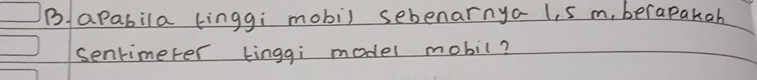 B. apabila tinggi mobil sebenarnya 1,5 m, berapakah
sentimeter tinggi model mobil?